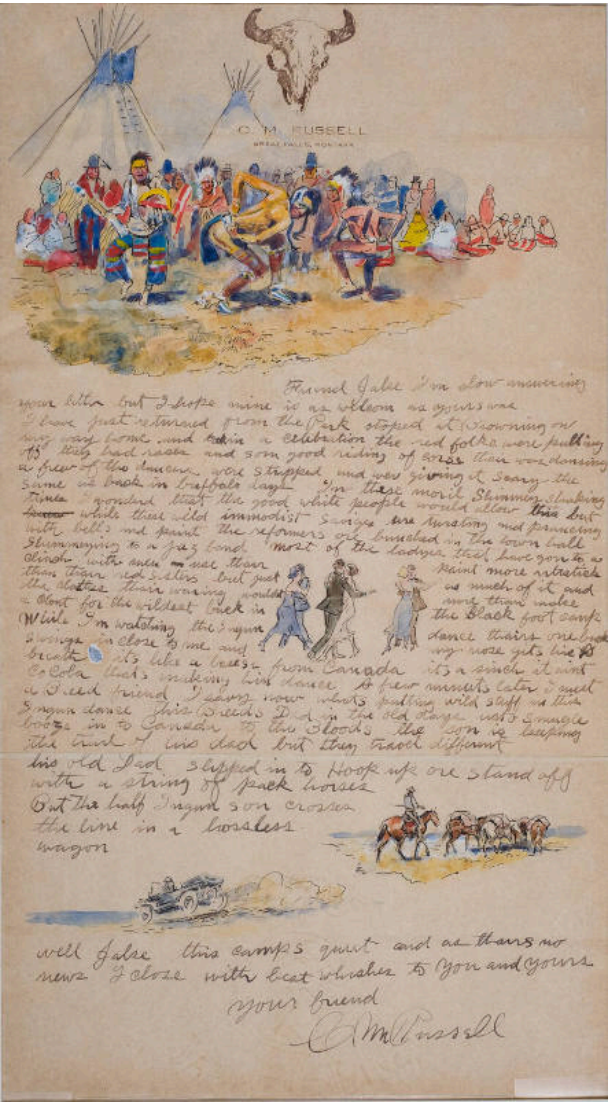 C. M. RUSSELL
GREAT FALLS, MONTANA
Friend Jake I'm slow answering
your letter but I hope mine is as welcom as yours was
I have just returned from the Park stoped at Browning on
my way home and in a celebration the red folks were pulling
off they had races and som good riding of corse thair was dansing
a fiew of the dancers were stripped and wer giving it the
same as back in buffalo days In these moril Shimmey shaking
times I wonderd that the good white people would allow this but
while these wild immodist Savages are twisting and prancing
with bells and paint the reformers are bunched in the town hall
Shimmeying to a jaz band most of the ladyes that have gon to a
clinch with men use thair paint more artistick
than thair red sisters but just as much of it and
the clothes thair waring would more than make
a clout for the wildest buck in the Black foot camp
While I'm watching the Ingun dance thairs one buck
swings in close to me and my nose gets his
breath it's like a breese from Canada its a sinch it aint
CoCola thats making him dance A fiew minuts later I meet
a Breed friend I savvy now whats putting wild stuff in this
Ingun dance this Breeds Dad in the old days usto smugle
booze in to Canada to the Bloods the son is keeping
the trail of his dad but they travel different
his old Dad slipped in to Hoop up ore stand off
with a string of pack horses
But the half Ingun son crosses
the line in a hossless
wagon
well Jake this camps quiet and as thairs no
news I close with best whishes to you and yours
your friend
CM Russell